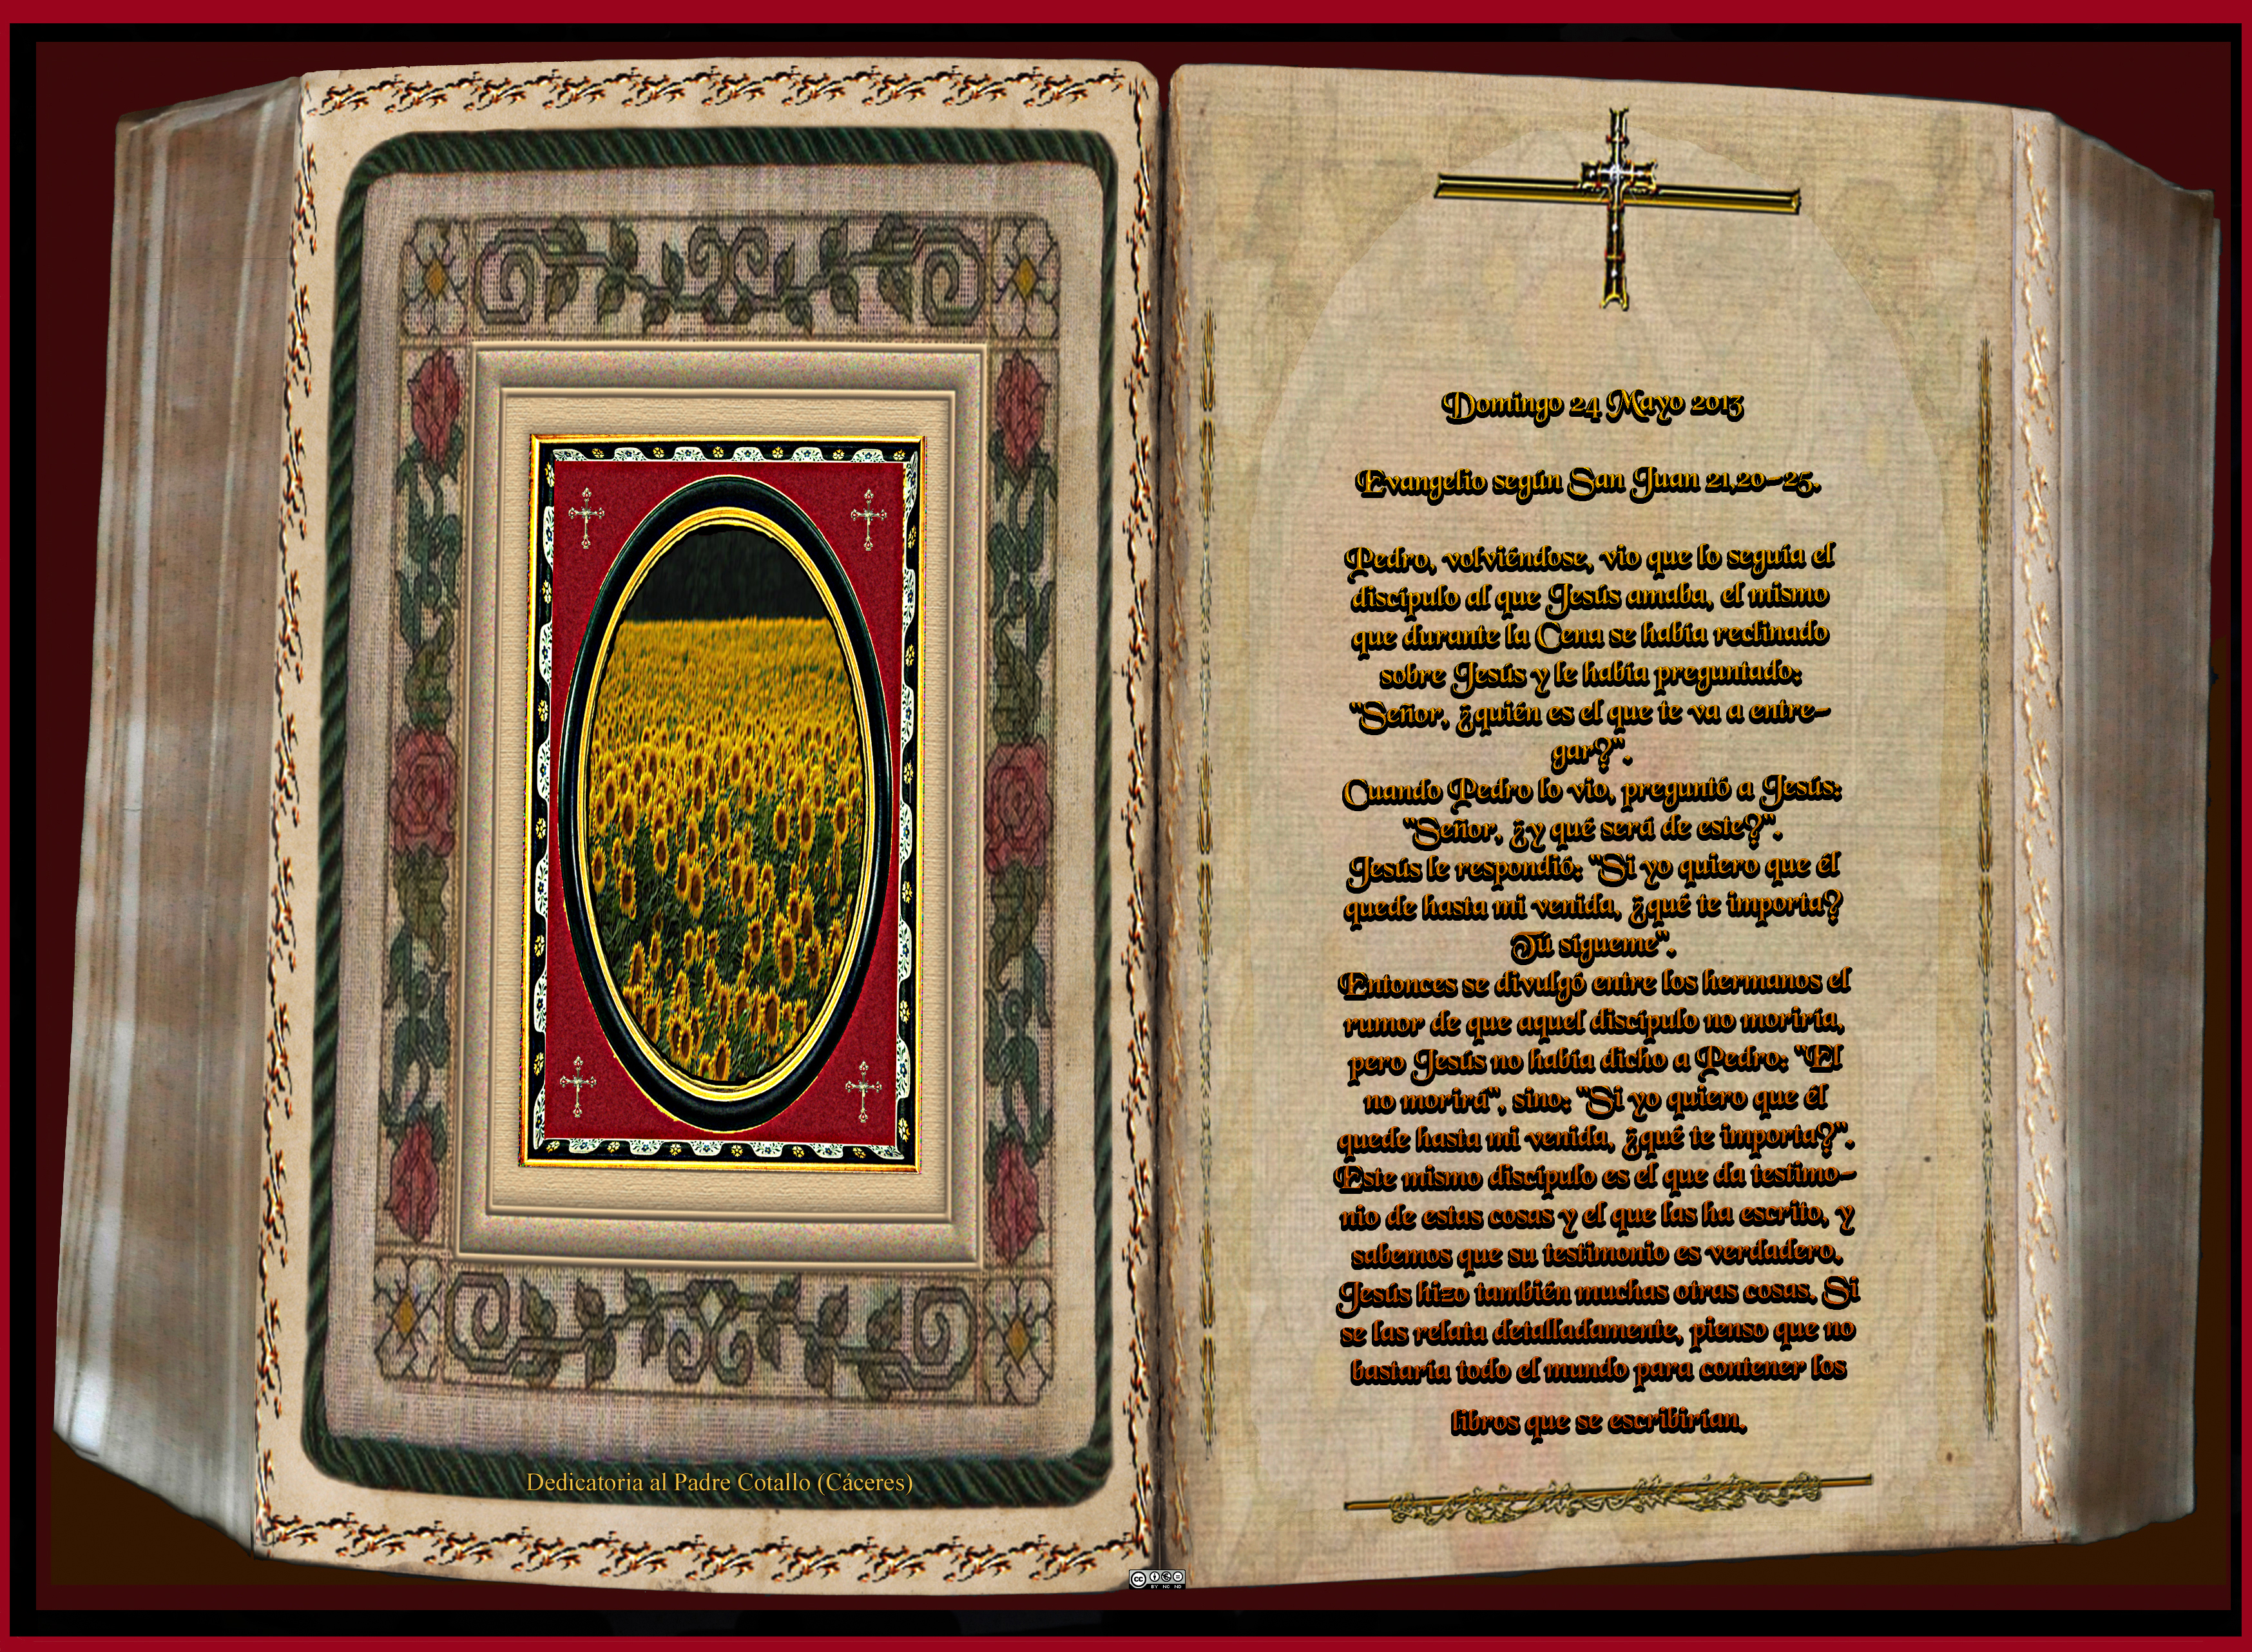 Dedicatoria al Padre Cotallo (Cáceres)
Domingo 24 Mayo 2015
Evangelio según San Juan 21,20-25.
Pedro, volviéndose, vio que lo seguía el
discípulo al que Jesús amaba, el mismo
que durante la Cena se había reclinado
sobre Jesús y le había preguntado:
"Señor, ¿quién es el que te va a entre-
gar?".
Cuando Pedro lo vio, preguntó a Jesús:
"Señor, ¿y qué será de este?".
Jesús le respondió: "Si yo quiero que él
quede hasta mi venida, ¿qué te importa?
Tú sígueme".
Entonces se divulgó entre los hermanos el
rumor de que aquel discípulo no moriría,
pero Jesús no había dicho a Pedro: "El
no morirá", sino: "Si yo quiero que él
quede hasta mi venida, ¿qué te importa?".
Este mismo discípulo es el que da testimo-
nio de estas cosas y el que las ha escrito, y
sabemos que su testimonio es verdadero.
Jesús hizo también muchas otras cosas. Si
se las relata detalladamente, pienso que no
bastaría todo el mundo para contener los
libros que se escribirían.
cc
BY NC ND